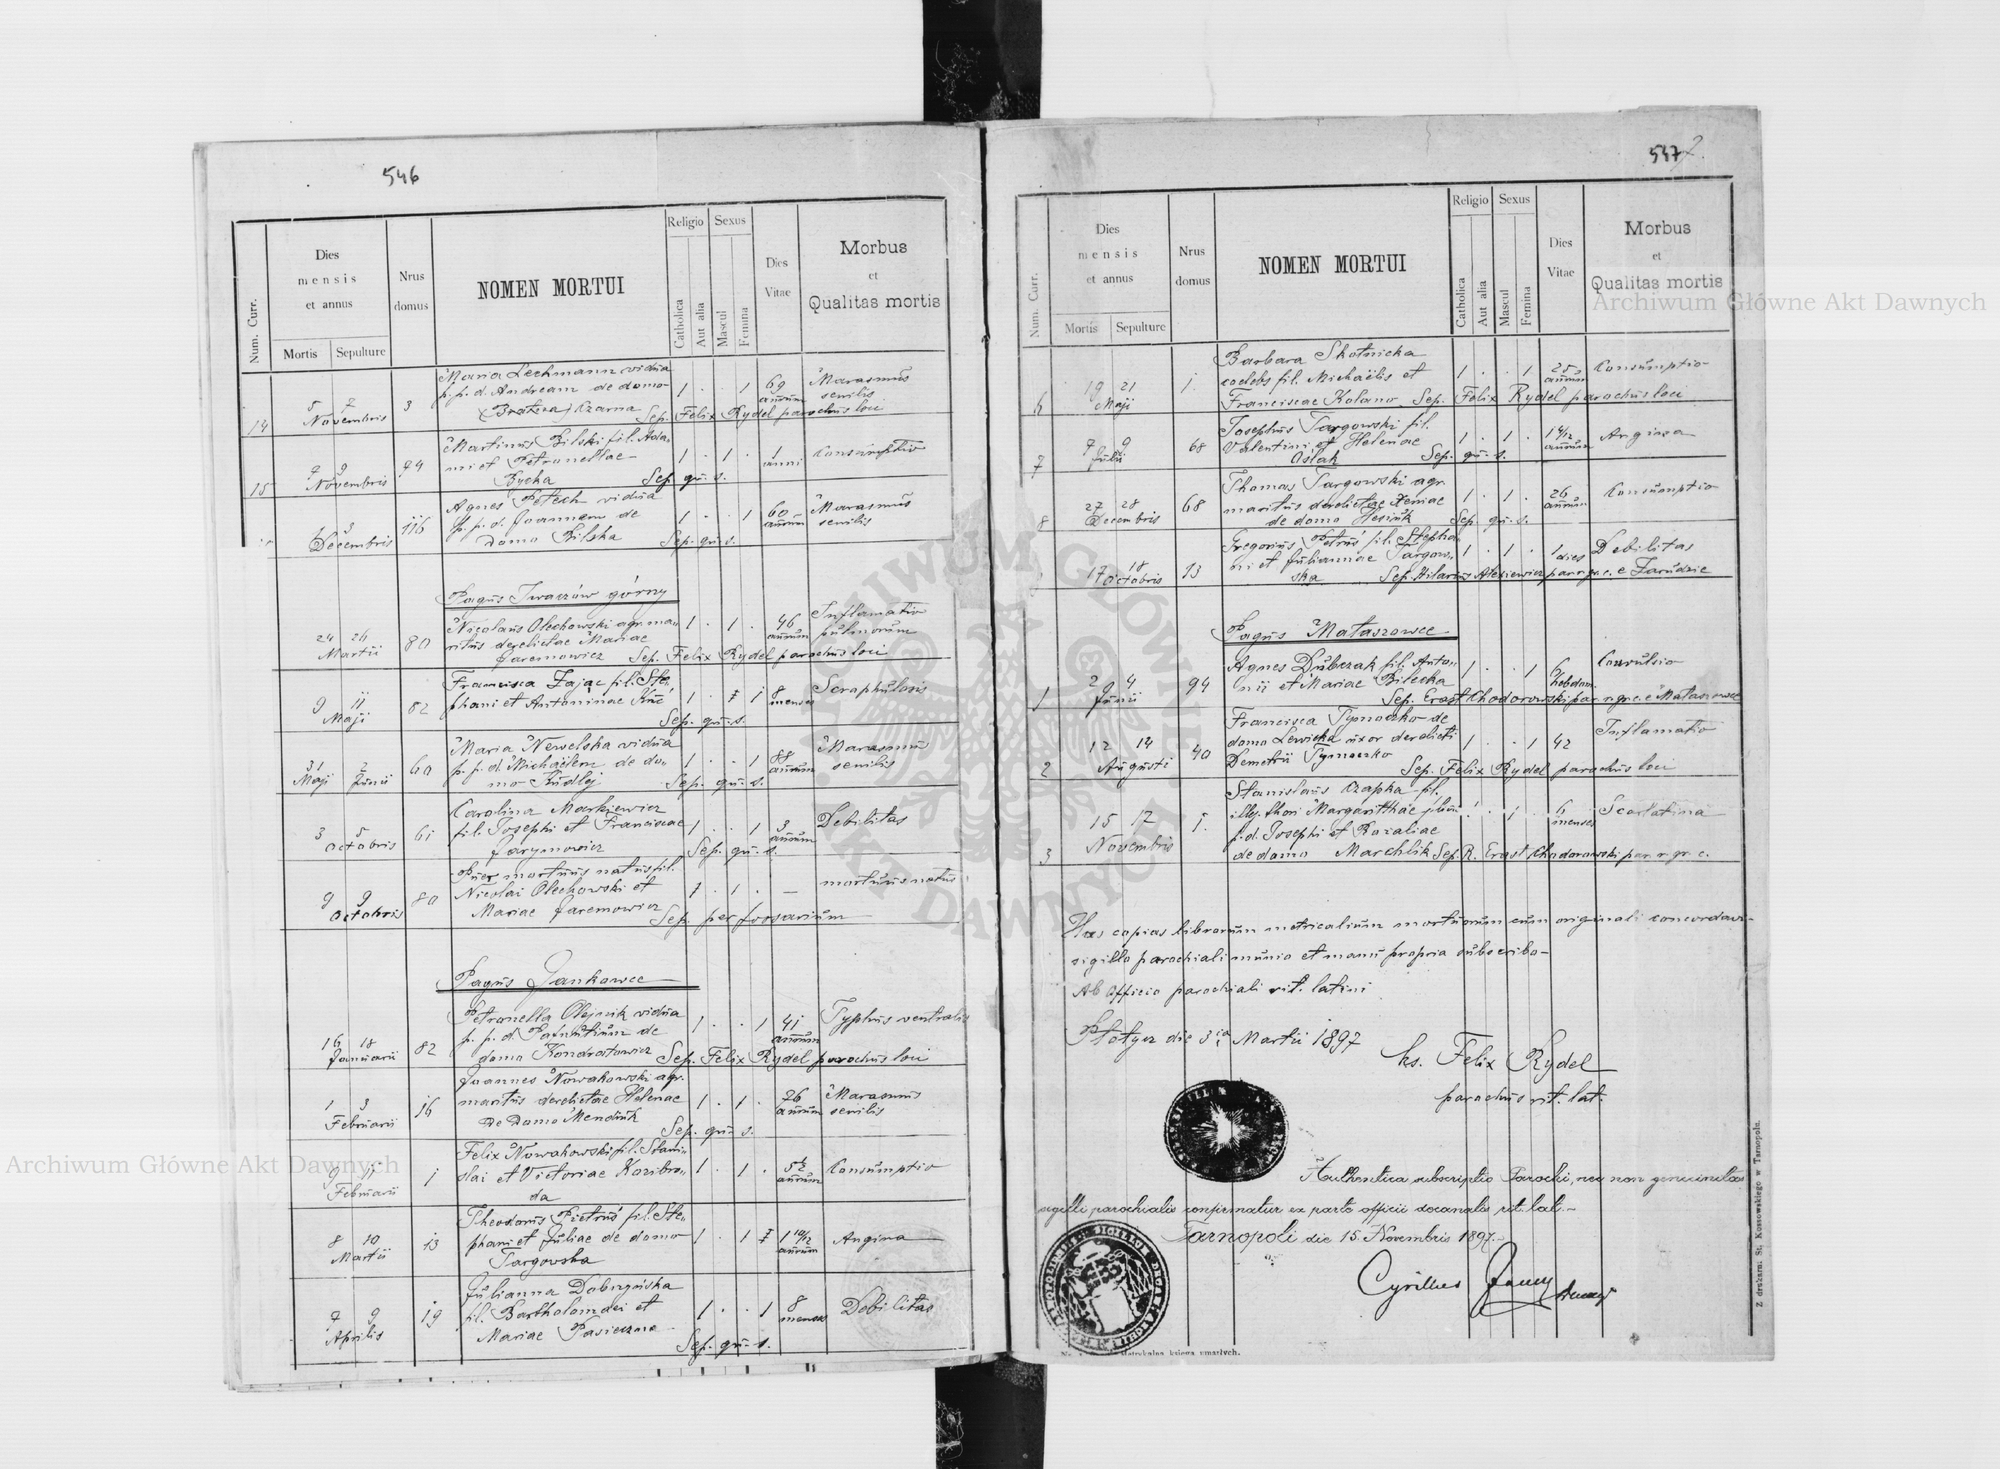 546
Num. Curr.
Dies mensis et annus
Mortis Sepulture
Nrus domus
NOMEN MORTUI
Religio
Catholica
Aut alia
Sexus
Mascul
Femina
Dies Vitae
Morbus et Qualitas mortis
14 5 7 Novembris 3 Maria Lechmann vidua 1 . . 1 69 annorum Marasmus senilis
p. p. d. Andream de domo
Czarna Sep. Felix Rydel parochus loci
15 7 9 Novembris 74 Martinus Bilski fil. Ada- 1 . 1 . 1 anni Consumptio
mi et Petronellae
Bycka Sep. qu. s.
3 Decembris 116 Agnes Petech vidua 1 . . 1 60 annorum Marasmus senilis
p. p. d. Joannem de
domo Bilska Sep. qu. s.
Pagus Iwaczów górny
24 26 Martii 80 Nicolaus Olechowski agr. ma- 1 . 1 . 46 annorum Inflamatio pulmorum
ritus derelictae Mariae
Jaremowicz Sep. Felix Rydel parochus loci
9 11 Maji 82 Francisca Zając fil. Ste- 1 . 1 8 menses Scraphulosis
phani et Antoninae
Sep. qu. s.
31 Maji 2 Junii 60 Maria Newelska vidua 1 . . 1 88 annorum Marasmus senilis
p. p. d. Michaëlem de do-
mo Sep. qu. s.
3 5 Octobris 61 Carolina Markiewicz 1 . . 1 3 annorum Debilitas
fil. Josephi et Franciscae
Jarymowicz Sep. qu. s.
9 9 Octobris 80 Puer mortuus natus fil. 1 . 1 . — mortuus natus
Nicolai Olechowski et
Mariae Jaremowicz Sep. per fossarium
Pagus Jankowce
16 18 Januarii 82 Petronella Olejnik vidua 1 . . 1 41 annorum Typhus ventralis
p. p. d. de
domo Kondratowicz Sep. Felix Rydel parochus loci
1 3 Februarii 16 Joannes Nowakowski agr. 1 . 1 . 76 annorum Marasmus senilis
maritus derelictae Helenae
de domo Mendiuk Sep. qu. s.
9 11 Februarii 1 Felix Nowakowski fil. Stani- 1 . 1 . annorum Consumptio
slai et Victoriae Koribro-
da
8 10 Martii 13 Theodorus Pietruś fil. Ste- 1 . 1 1 10/12 annorum Angina
phani et Juliae de domo
Targowska
7 9 Aprilis 19 Julianna Dobrzyńska 1 . . 1 8 menses Debilitas
fil. Bartholomaei et
Mariae Pasieczna
Sep. qu. s.
547
Num. Curr.
Dies mensis et annus
Mortis Sepulture
Nrus domus
NOMEN MORTUI
Religio
Catholica
Aut alia
Sexus
Mascul
Femina
Dies Vitae
Morbus et Qualitas mortis
6 19 21 Maji 1. Barbara Skotnicka 1 . . 1 25 annorum Consumptio
coelebs fil. Michaëlis et
Franciscae Kolano Sep. Felix Rydel parochus loci
7 7 9 Julii 68 Josephus Targowski fil. 1 . 1 . 1 4/12 annorum Angina
Valentini et Helenae
Oślak Sep. qu. s.
8 27 28 Decembris 68 Thomas Targowski agr. 1 . 1 . 26 annorum Consumptio
maritus derelictae Xeniae
de domo Hesiuk Sep. qu. s.
17 18 Octobris 13 Gregorius Petruś fil. Stepha- 1 . 1 . 1 dies Debilitas
ni et Juliannae Targow-
ska Sep. Hilarius Alexiewicz par. r. gr. c. e Zarudzie
Pagus Mataszowce
1 2 4 Junii 94 Agnes Dubczak fil. Anto- 1 . . 1 6 hebdom. Convulsio
nii et Mariae Bilecka
Sep. Erast Chodorowski par. r. gr. c. e Mataszowce
2 12 14 Augusti 40 Francisca Tymoczko de 1 . . 1 42 Inflamatio
domo Lewicka uxor derelicti
Demetrii Tymoczko Sep. Felix Rydel parochus loci
3 15 17 Novembris 1. Stanislaus Czapka fil. 1 . 1 . 6 menses Scarlatina
illeg. thori Margarithae filiae
p. d. Josephi et Rozaliae
de domo Marchlik Sep. R. Erast Chodorowski par. r. gr. c.
Has copias librorum metricalium mortuorum cum originali concordari
sigillo parochiali munio et manu propria subscribo —
Ab officio parochiali rit. latini
Płotycz die 3ia Martii 1897
ks. Felix Rydel
parochus rit. lat.
Authentica subscriptio Parochi, nec non genuinitas
sigilli parochialis confirmatur ex parte officii decanalis rit. lat. —
Tarnopoli die 15. Novembris 1897. —
Cyrillus
Metrykalna księga umarłych.
Z drukarni St. Kossowskiego w Tarnopolu.
Archiwum Główne Akt Dawnych
Archiwum Główne Akt Dawnych
ARCHIWUM GŁÓWNE AKT DAWNYCH